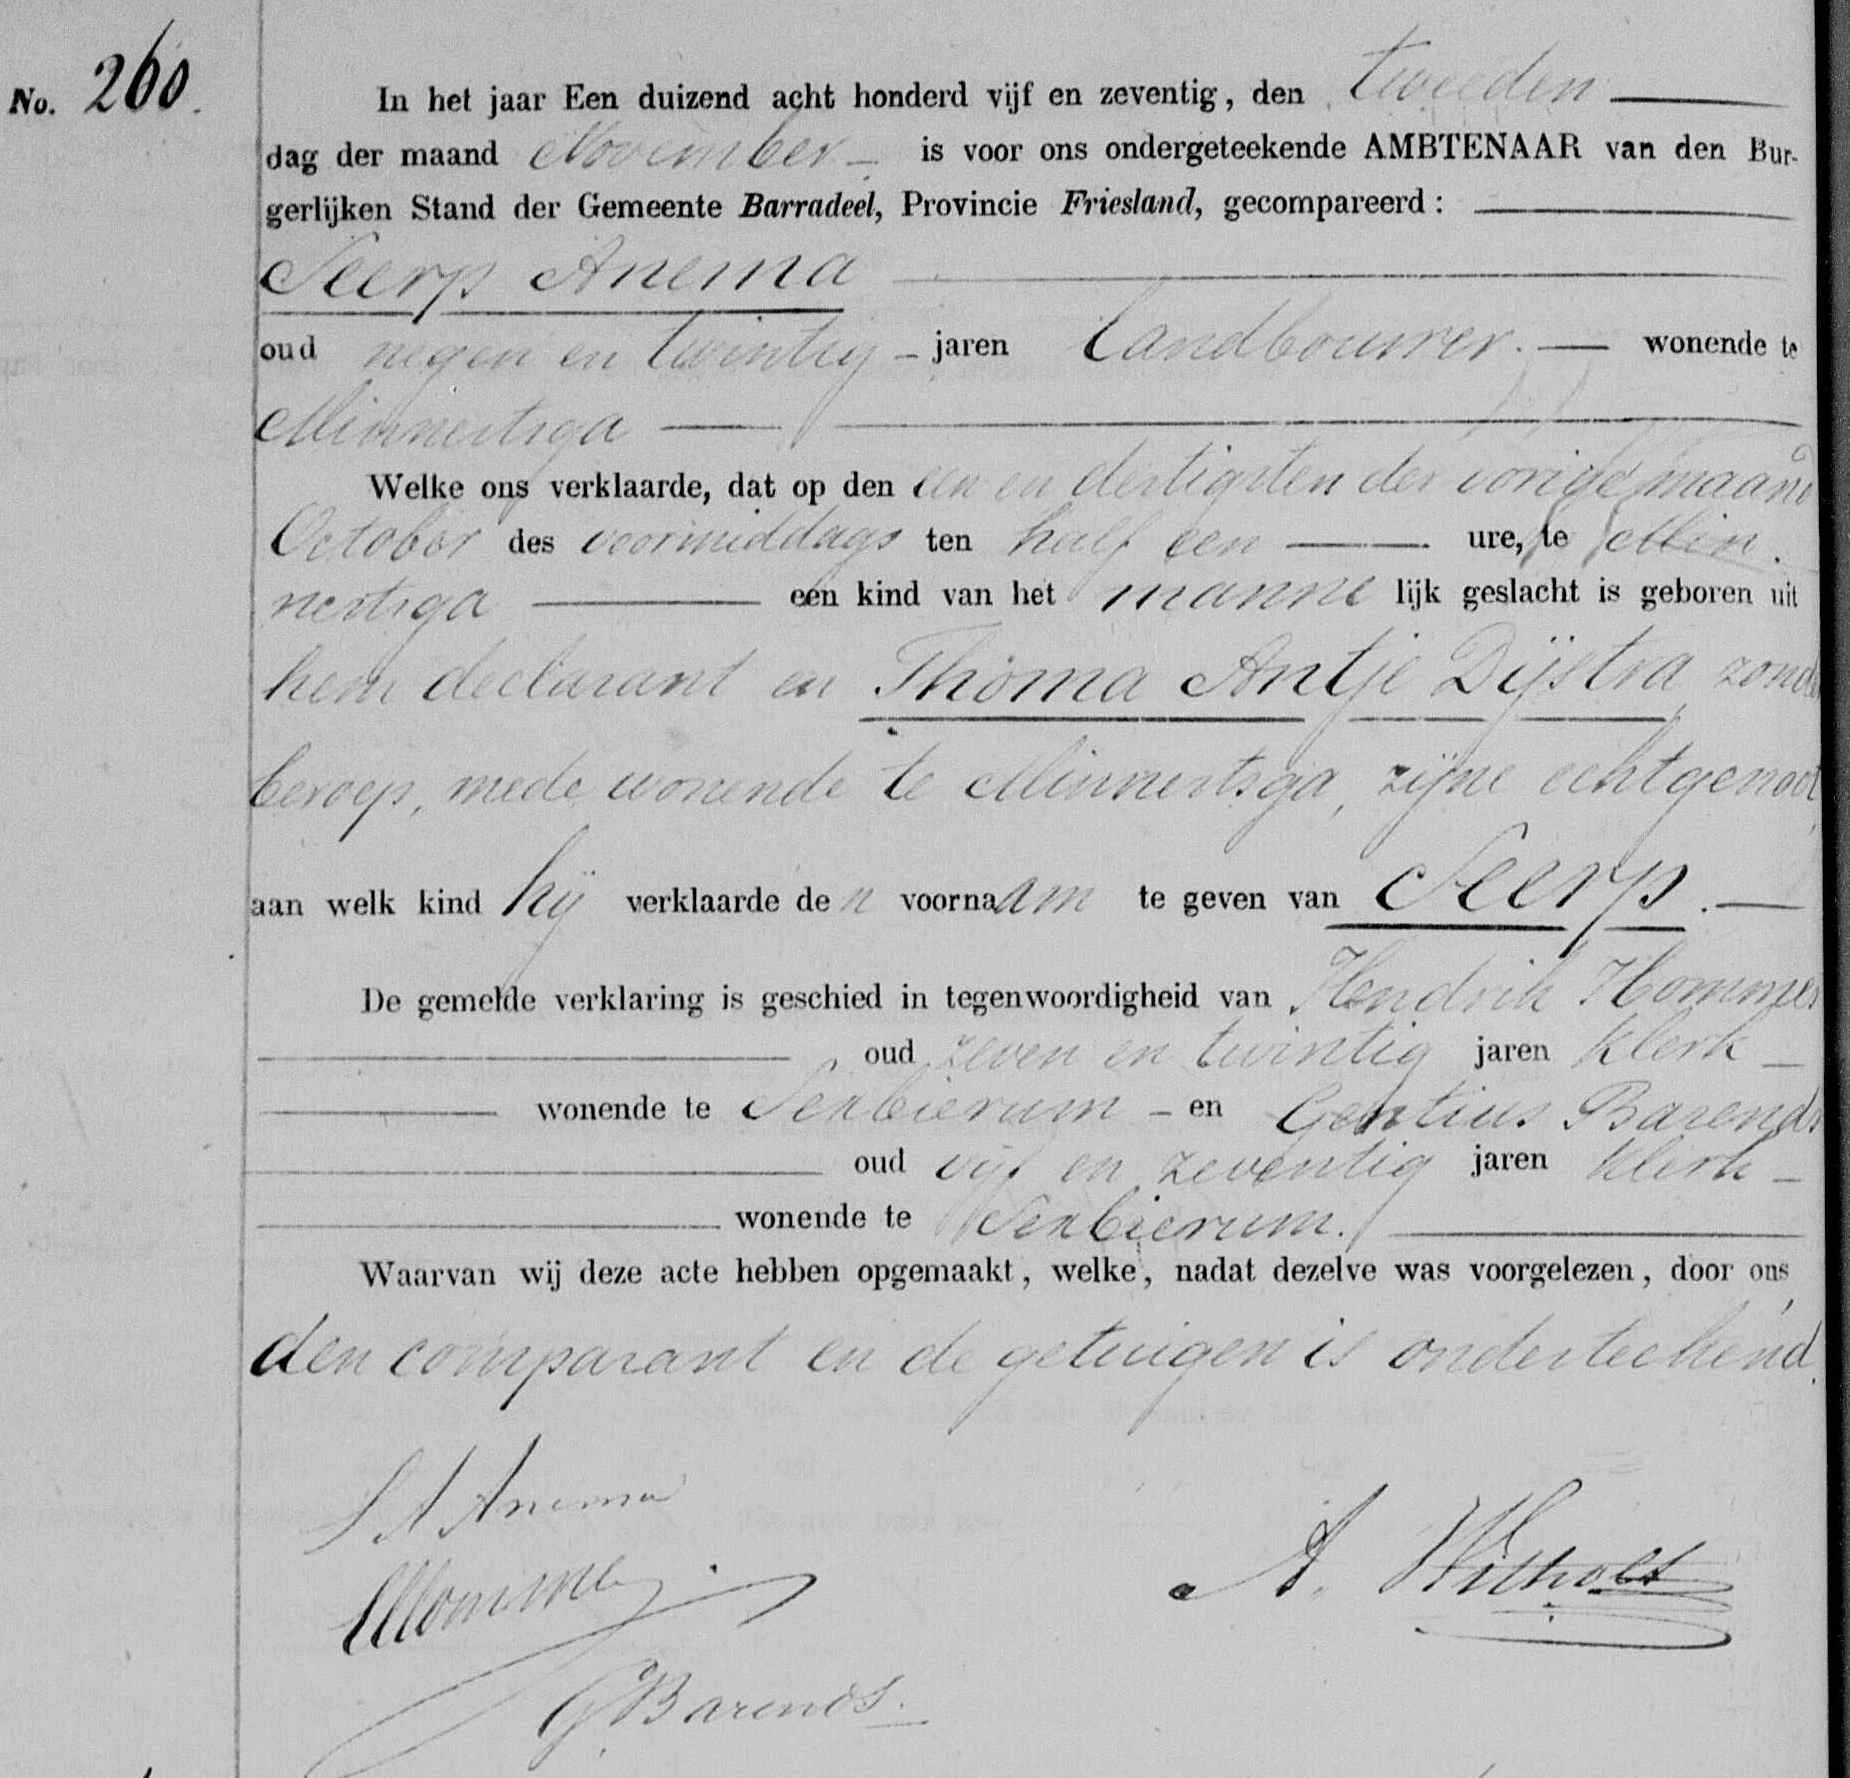 No. 260.
In het jaar Een duizend acht honderd vijf en zeventig, den tweeden
dag der maand November is voor ons ondergeteekende AMBTENAAR van den Bur-
gerlijken Stand der Gemeente Barradeel, Provincie Friesland, gecompareerd:
Seerp Anema
oud negen en twintig jaren Landbouwer. wonende te
Minnertsga
Welke ons verklaarde, dat op den een en dertigsten der vorige maand
October des voormiddags ten half een ure, te Min
nertsga een kind van het manne lijk geslacht is geboren uit
hem declarant en Thoma Antje Dijstra, zonder
beroep, mede wonende te Minnertsga, zijne echtgenoot,
aan welk kind hij verklaarde den voornaam te geven van Seerp.
De gemelde verklaring is geschied in tegenwoordigheid van Hendrik Hommes
oud zeven en twintig jaren klerk
wonende te Sexbierum en Gentius Barends
oud vijf en zeventig jaren klerk
wonende te Sexbierum.
Waarvan wij deze acte hebben opgemaakt, welke, nadat dezelve was voorgelezen, door ons,
den comparant en de getuigen is onderteekend.
S A Anema
A.
HHommes
GBarends.